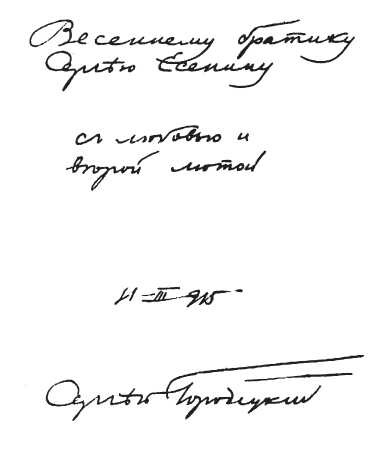 Весеннему братику
Сергѣю Есенину
съ любовью и
второй лютой
11–III–915
Сергѣй Городецкий